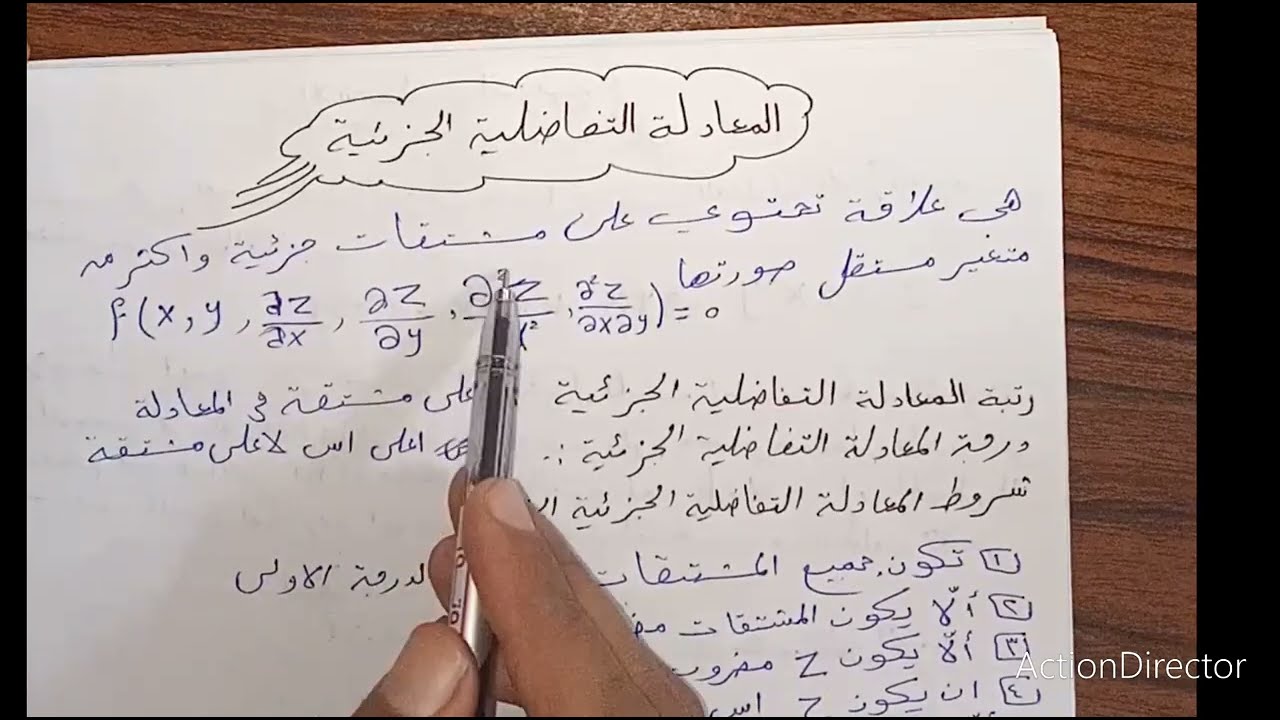 المعادلة التفاضلية الجزئية
هي علاقة تحتوي على مشتقات جزئية واكثر من
متغير مستقل صورتها
f(x, y, ∂z/∂x, ∂z/∂y, ∂²z/ x², ∂²z/∂x∂y) = 0
رتبة المعادلة التفاضلية الجزئية على مشتقة في المعادلة
درجة المعادلة التفاضلية الجزئية :. اعلى اس لاعلى مشتقة
شروط المعادلة التفاضلية الجزئية
١ تكون جميع المشتقات الدرجة الاولى
٢ ألّا يكون المشتقات
٣ ألّا يكون z مضروب
٤ ان يكون z اس
ActionDirector